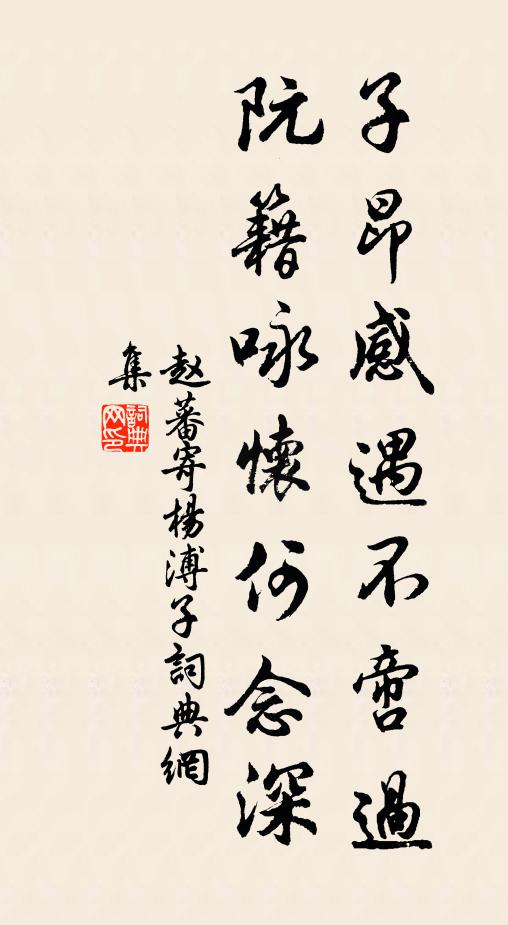 子昂感遇不啻過
阮籍咏懷何念深
赵蕃寄楊溥子詞典網
集
詞典网印